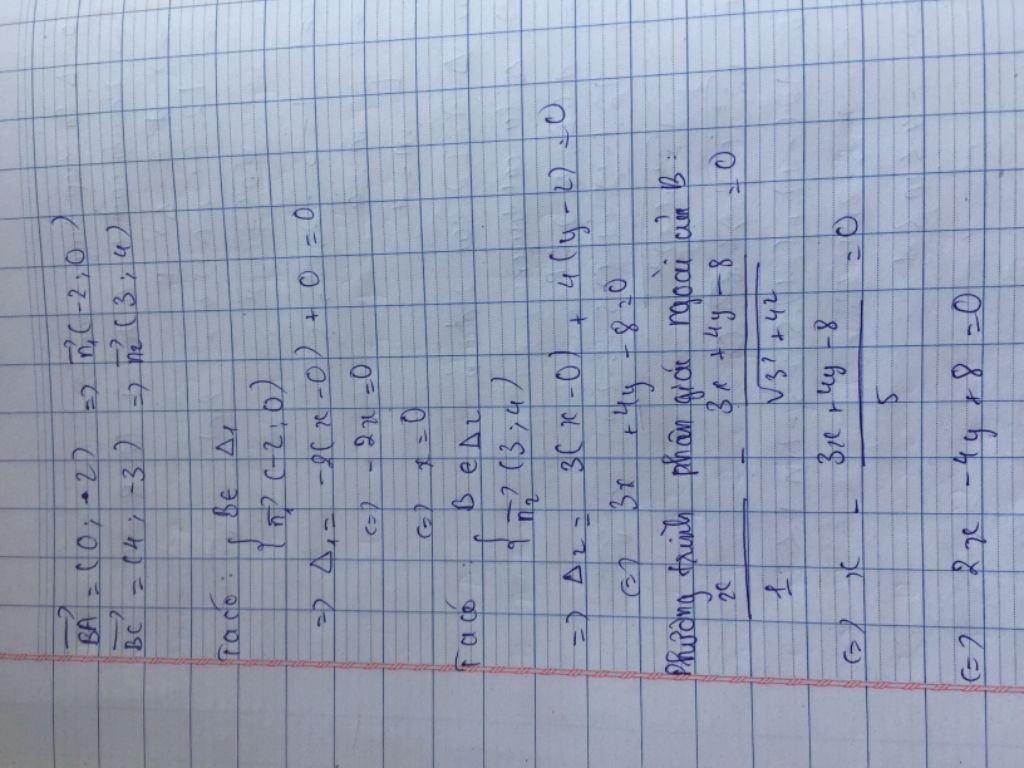 BA→ = (0; -2) => n₁→(-2; 0)
BC→ = (4; -3) => n₂→(3; 4)
Ta có: { B∈ Δ1
n₁→(-2; 0)
=> Δ1 = -2(x-0) + 0 = 0
(=) -2x = 0
(=) x = 0
Ta có: { B ∈ Δ2
n₂→(3; 4)
=> Δ2 = 3(x-0) + 4(y-2) = 0
(=) 3x + 4y - 8 = 0
Phương trình phân giác ngoài của B:
x/1 - (3x + 4y - 8)/√(3² + 4²) = 0
(=) x - (3x + 4y - 8)/5 = 0
(=) 2x - 4y + 8 = 0